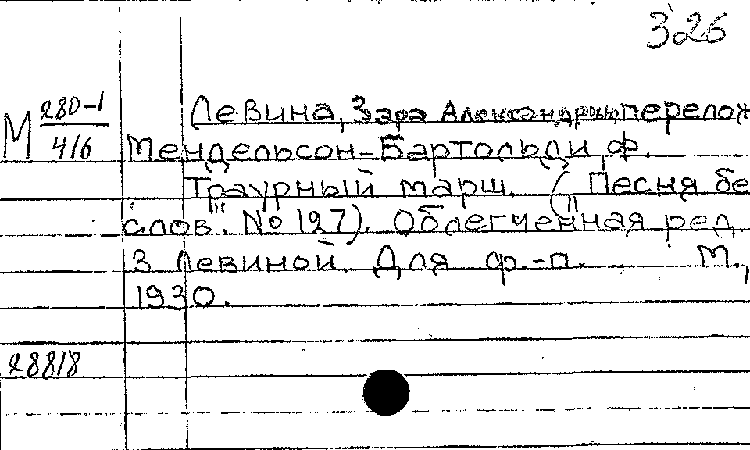 326
М 280-1
4/6
Левина, Зара Александровна перелож
Мендельсон-Бартольди, Ф.
Траурный марш. ("Песня бе
слов". № 127). Облегченная ред.
З. Левиной. Для ф.-п. М.,
1930.
28818